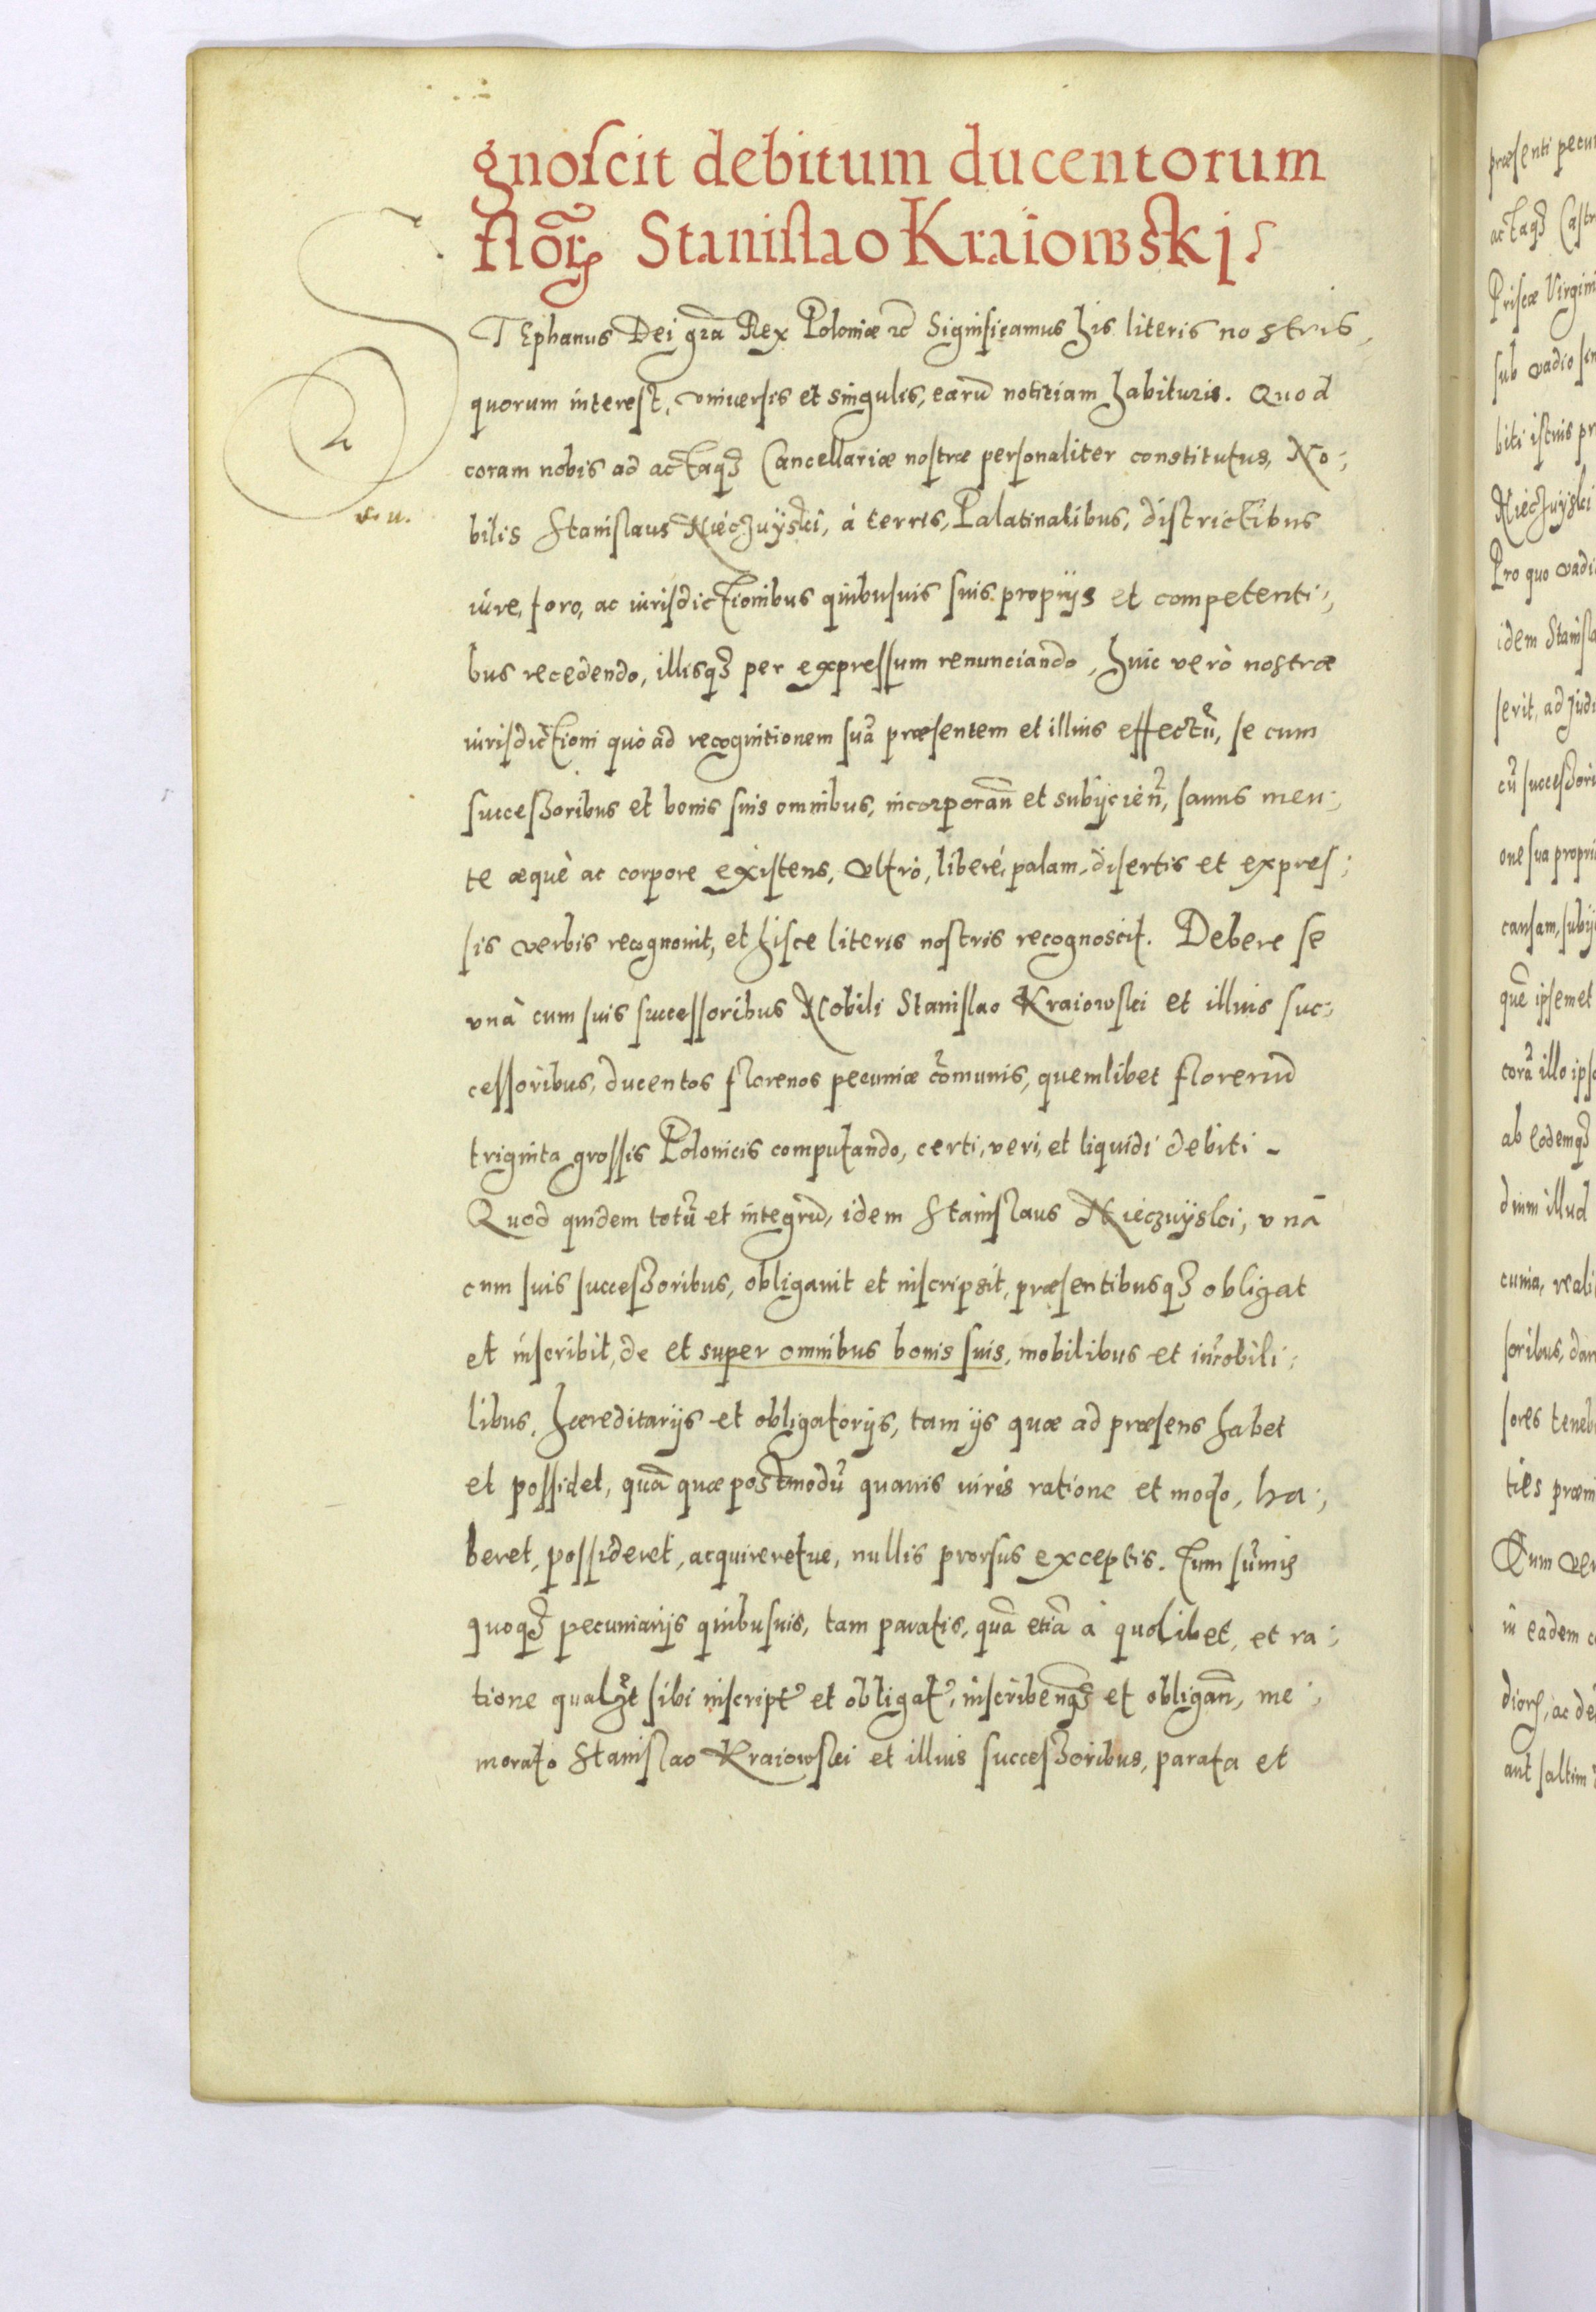 gnoscit debitum ducentorum
florꝝ Stanislao Kraiowski.
STEphanus Dei gra͂ Rex Poloniæ ꝛc Significamus his literis nostris,
quorum interest, vniuersis et singulis, earu͂ notitiam habituris. Quod
coram nobis ad actaqꝫ Cancellariæ nostræ personaliter constitutus, No:
bilis Stanislaus Nieczuÿski, á terris, Palatinatibus, districtibus
iúre, foro, ac iurisdictionibus quibusuis suis proprijs et competenti:
bus recedendo, illisqꝫ per expressum renunciando, huic verò nostræ
iurisdictioni quò ad recognitionem sua͂ præsentem et illius effectu͂, se cum
successoribus et bonis suis omnibus, incorporan͂ et subijcien͂, sanus men:
te æquè ac corpore existens, vltrò, liberè, palam, disertis et expres:
sis verbis recognouit, et hisce literis nostris recognoscit. Debere se
vnà cum suis successoribus Nobili Stanislao Kraiowski et illius suc:
cessoribus, ducentos florenos pecuniæ co͂munis, quemlibet florenu͂
triginta grossis Polonicis computando, certi, veri, et liquidi debiti -
Quod quidem totu͂ et integru͂, idem Stanislaus Nieczuÿski, vnà
cum suis successoribus, obligauit et inscripsit, præsentibusqꝫ obligat
et inscribit, de et super omnibus bonis suis, mobilibus et im͂obili:
libus, hæreditarijs et obligatorijs, tam ijs quæ ad præsens habet
et possidet, qua͂ quæ postmodu͂ quauis iuris ratione et modo, ha:
beret, possideret, acquireretue, nullis prorsus exceptis. Tum su͂mis
quoqꝫ pecuniarijs quibusuis, tam paratis, qua͂ etia͂ à quolibet, et ra:
tione qualꝫt sibi inscript͂ et obligat͂, inscriben͂qꝫ et obligan͂, me:
morato Stanislao Kraiowski et illius successoribus, parata et
præsenti
actaqꝫ
Priscæ
sub vadio
Nieczuÿski
Pro quo
idem
serit, ad
one sua
causam,
que͂ ipsemet
cora͂ illo
ab eodemqꝫ
dium illud
cunia,
soribus,
sores
in eadem
aut saltim